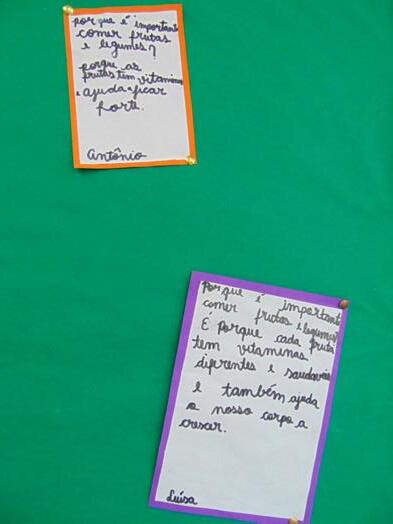 porque é important
comer frutas
e legumes?
porque as
frutas tem vitaminas
e ajuda a ficar
forte.
Antônio
Porque é important
comer frutas e legumes?
É porque cada fruta
tem vitaminas
diferentes e saudaveis
e também ajuda
o nosso corpo a
crescer.
Luísa